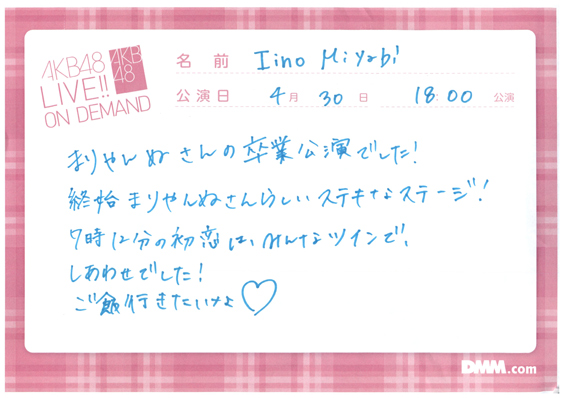 AKB48
LIVE!!
ON DEMAND
AKB
48
名前 Iino Miyabi
公演日 4月30日 18:00 公演
まりやんぬさんの卒業公演でした!
終始まりやんぬさんらしいステキなステージ!
7時12分の初恋は、みんなツインで、
しあわせでした!
ご飯行きたいよ♡
DMM.com